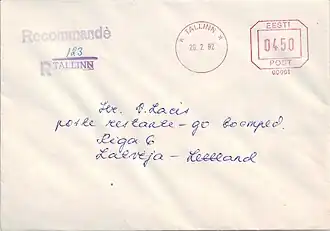 Recommandè
123
R TALLINN
* TALLINN *
29. 7. 92
EESTI
0450
POST
Hr. G. Lacis
poste restante – go boomped.
Riga 6
Latvija – Lettland